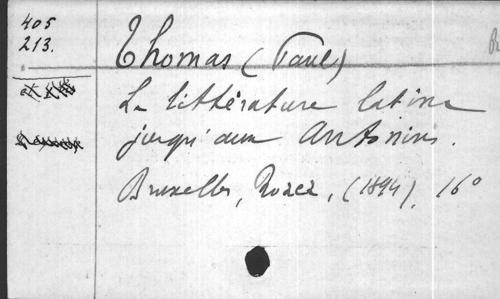 405
213.
Thomas (Paul)
La littérature latine
jusqu'aux Antonins.
Bruxelles, Rozez, (1894). 16°